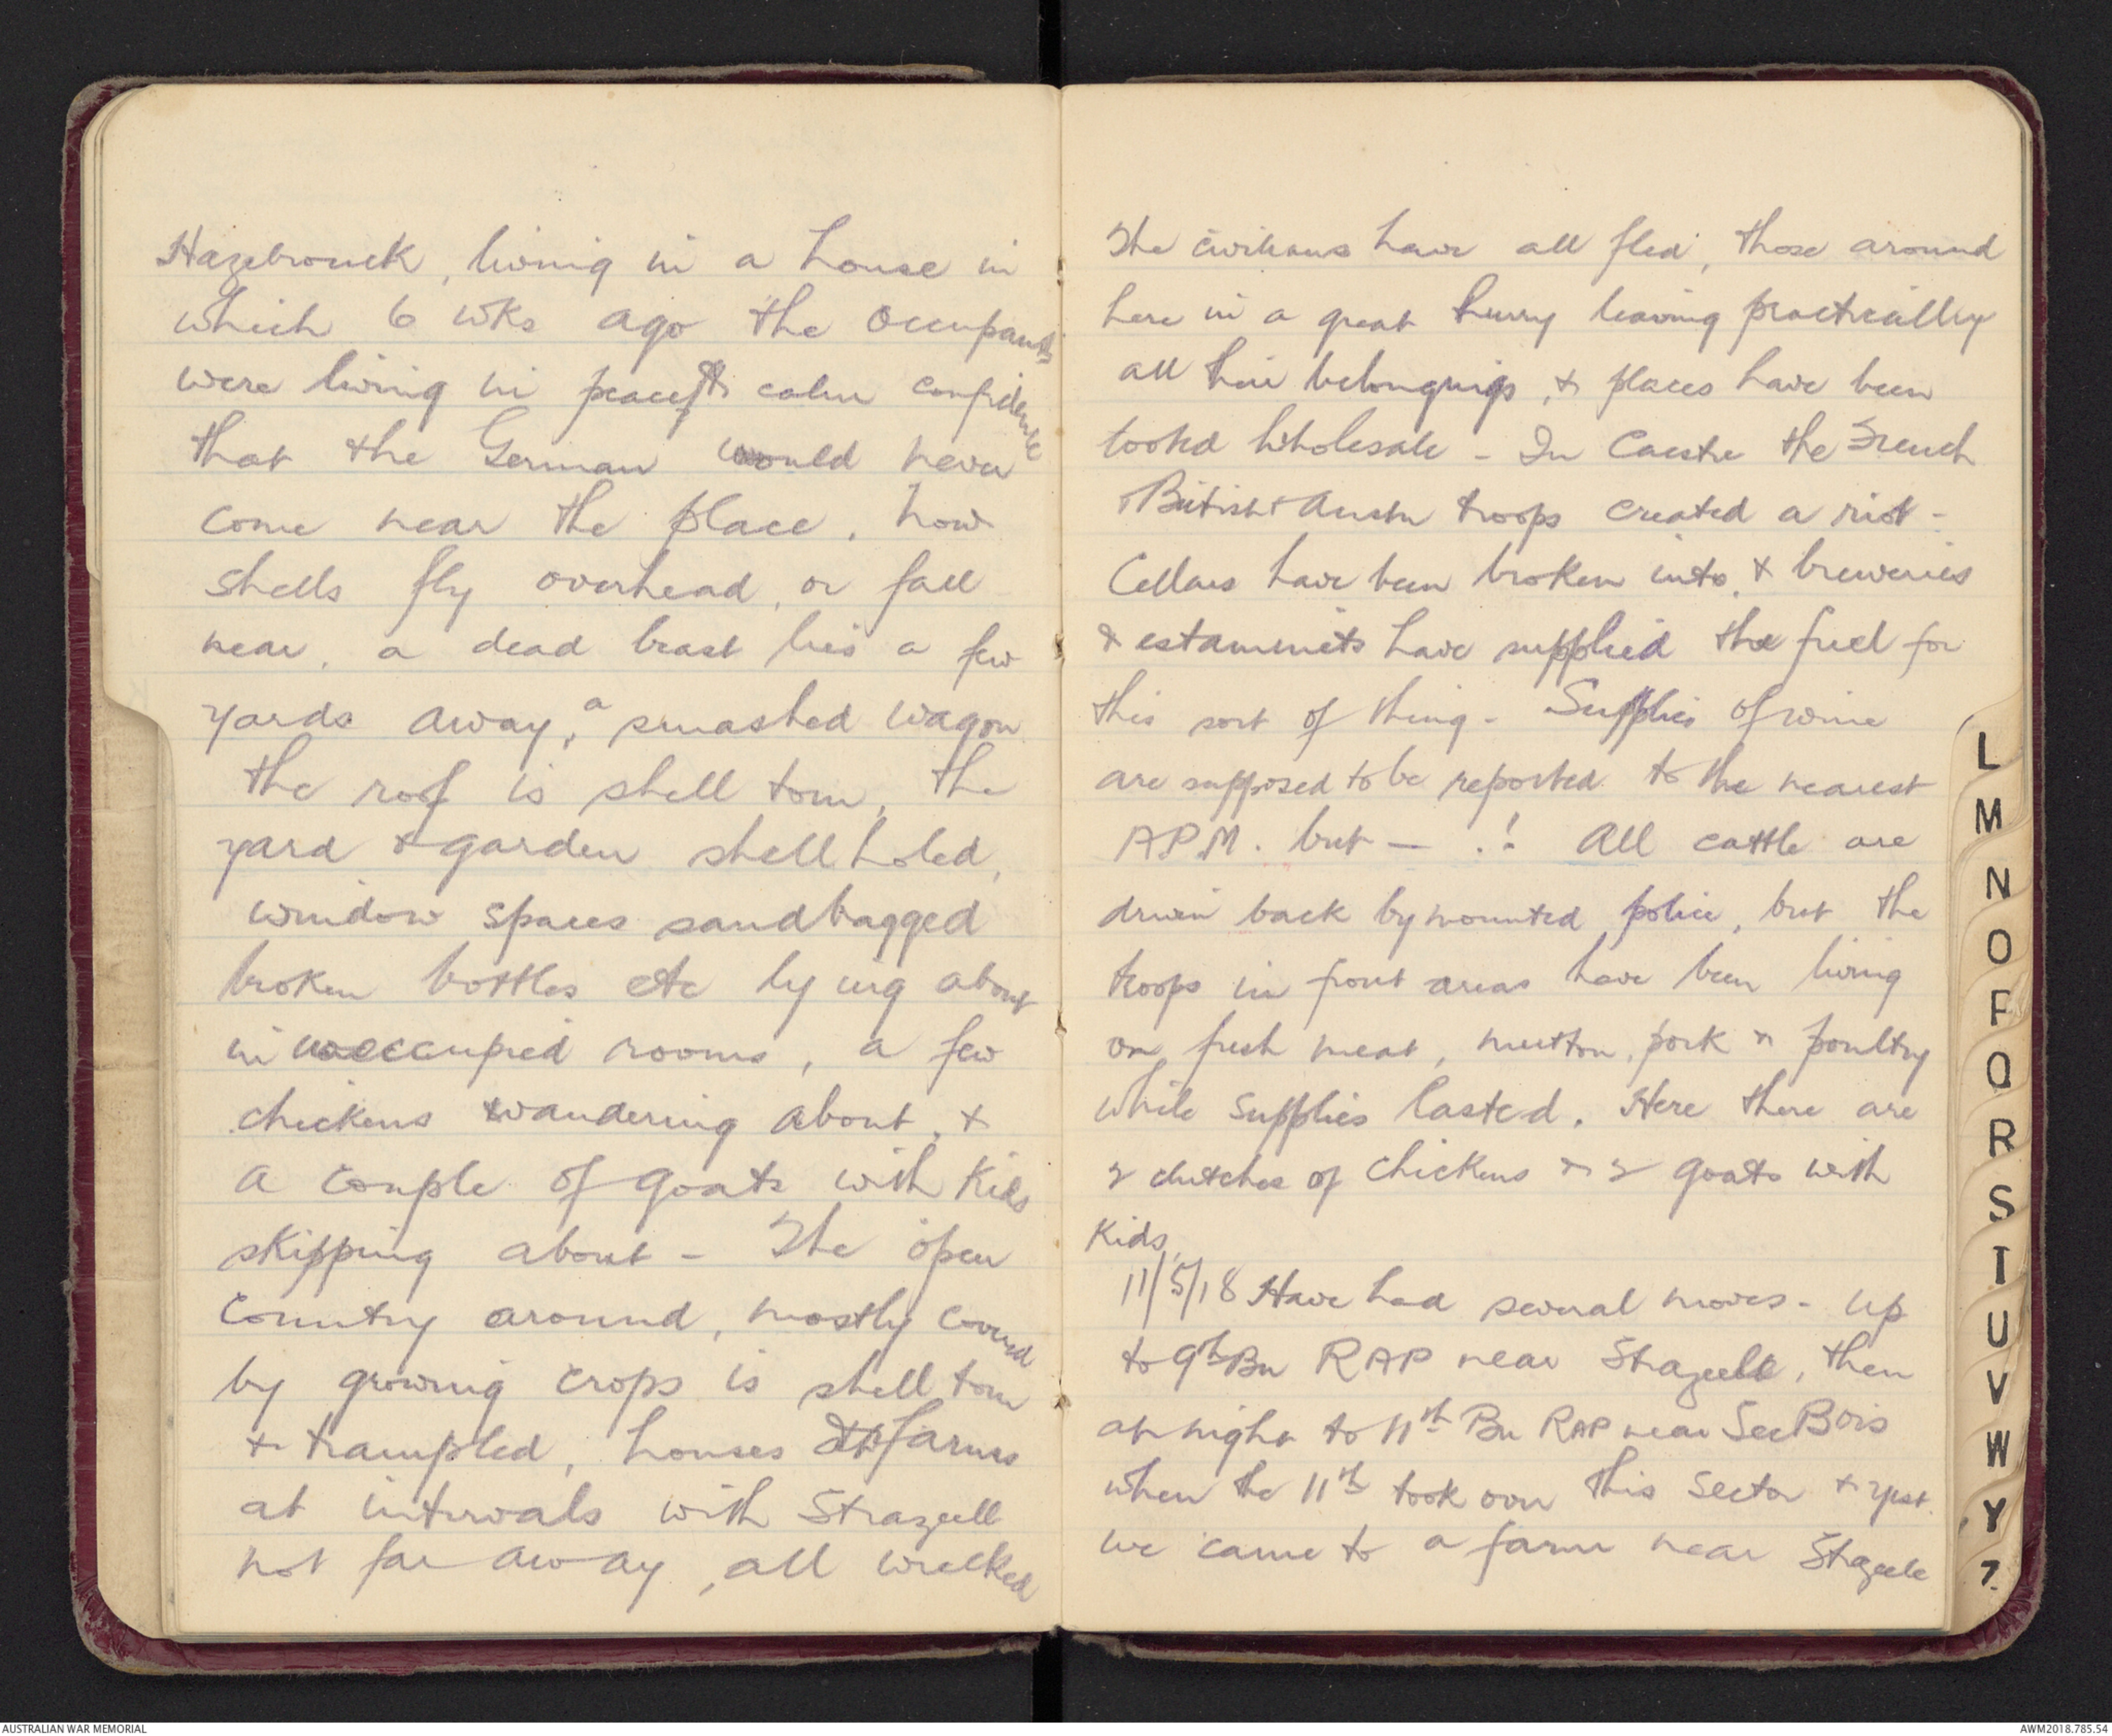 Hazebrouck, living in a house in
which 6 wks ago the occupants
were living in peace & calm confidence
that the German would never
come near the place. Now
shells fly overhead, or fall
near, a dead beast lies a few
yards away, a smashed wagon
the roof is shell torn, the
yard & garden shell holed,
window spaces sandbagged
broken bottles etc lying about
in unoccupied rooms, a few
chickens wandering about, &
a couple of goats with kids
skipping about - The open
country around, mostly covered
by growing crops is shell torn
& trampled, houses & farms
at intervals with Strazeell
not far away, all wrecked
The civilians have all fled, those around
here in a great hurry leaving practically
all their belongings, & places have been
looted wholesale - In Caestre the French
British & Austn troops created a riot -
Cellars have been broken into, & breweries
& estaminets have supplied the fuel for
this sort of thing - Supplies of wine
are supposed to be reported to the nearest
APM. but — . ! All cattle are
driven back by mounted police, but the
troops in front areas have been living
on fresh meat, mutton, pork & poultry
while supplies lasted. Here there are
2 clutches of chickens & 2 goats with
kids.
11/5/18 Have had several moves - up
to 9th Bn RAP near Strazeele, then
at night to 11th Bn RAP near Sec Bois
when the 11th took over this sector & yest.
we came to a farm near Stazeele
L
M
N
O
P
Q
R
S
T
U
V
W
Y
Z
AUSTRALIAN WAR MEMORIAL
AWM2018.785.54